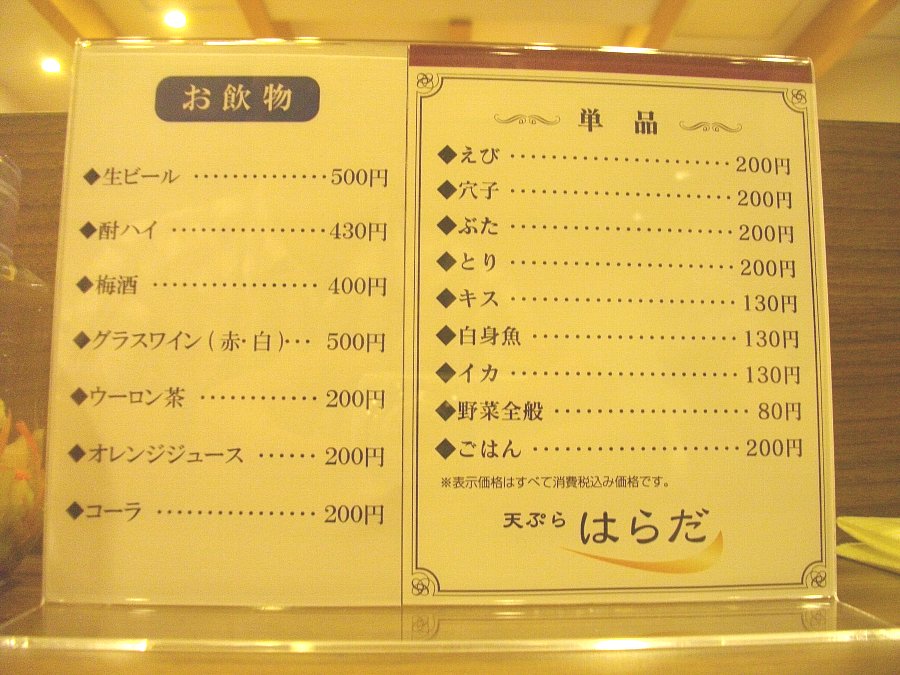 お飲物
◆生ビール ‥‥‥‥‥‥‥ 500円
◆酎ハイ ‥‥‥‥‥‥‥‥ 430円
◆梅酒 ‥‥‥‥‥‥‥‥ 400円
◆グラスワイン(赤・白)‥‥ 500円
◆ウーロン茶 ‥‥‥‥‥‥ 200円
◆オレンジジュース ‥‥‥ 200円
◆コーラ ‥‥‥‥‥‥‥‥ 200円
単品
◆えび ‥‥‥‥‥‥‥‥‥‥‥ 200円
◆穴子 ‥‥‥‥‥‥‥‥‥‥‥ 200円
◆ぶた ‥‥‥‥‥‥‥‥‥‥‥ 200円
◆とり ‥‥‥‥‥‥‥‥‥‥‥ 200円
◆キス ‥‥‥‥‥‥‥‥‥‥‥ 130円
◆白身魚 ‥‥‥‥‥‥‥‥‥‥ 130円
◆イカ ‥‥‥‥‥‥‥‥‥‥‥ 130円
◆野菜全般 ‥‥‥‥‥‥‥‥‥ 80円
◆ごはん ‥‥‥‥‥‥‥‥‥‥ 200円
※表示価格はすべて消費税込み価格です。
天ぷら はらだ